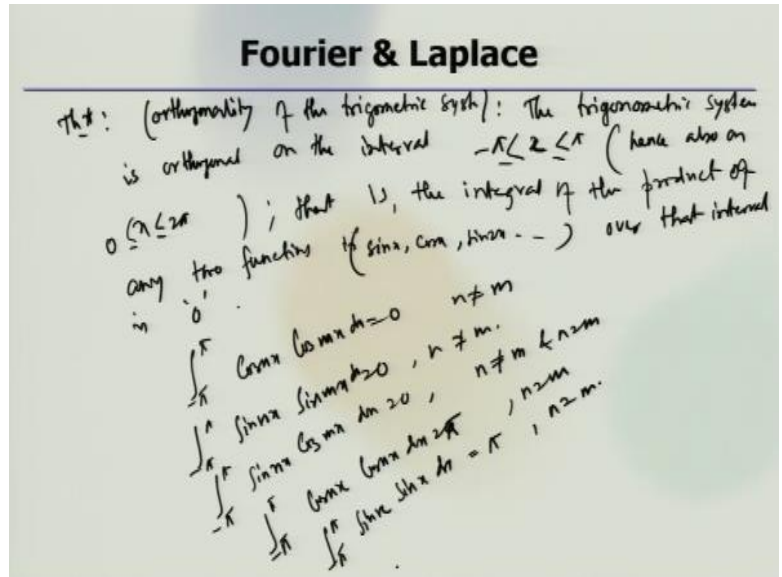 Fourier & Laplace
Th*: (orthogonality of the trigometric syst): The trigonometric system
is orthogonal on the interval -π ≤ x ≤ π (hence also on
0 ≤ x ≤ 2π ); that is, the integral of the product of
any two functions in (sinx, cosx, sin2x ...) over that interval
is '0'.
∫_{-π}^{π} cosnx cosmx dx = 0 n ≠ m
∫_{-π}^{π} sinnx sinmx dx = 0 , n ≠ m.
∫_{-π}^{π} sinnx cosmx dx = 0 , n ≠ m & n = m
∫_{-π}^{π} cosnx cosnx dx = π , n = m
∫_{-π}^{π} sinx sinx dx = π , n = m.